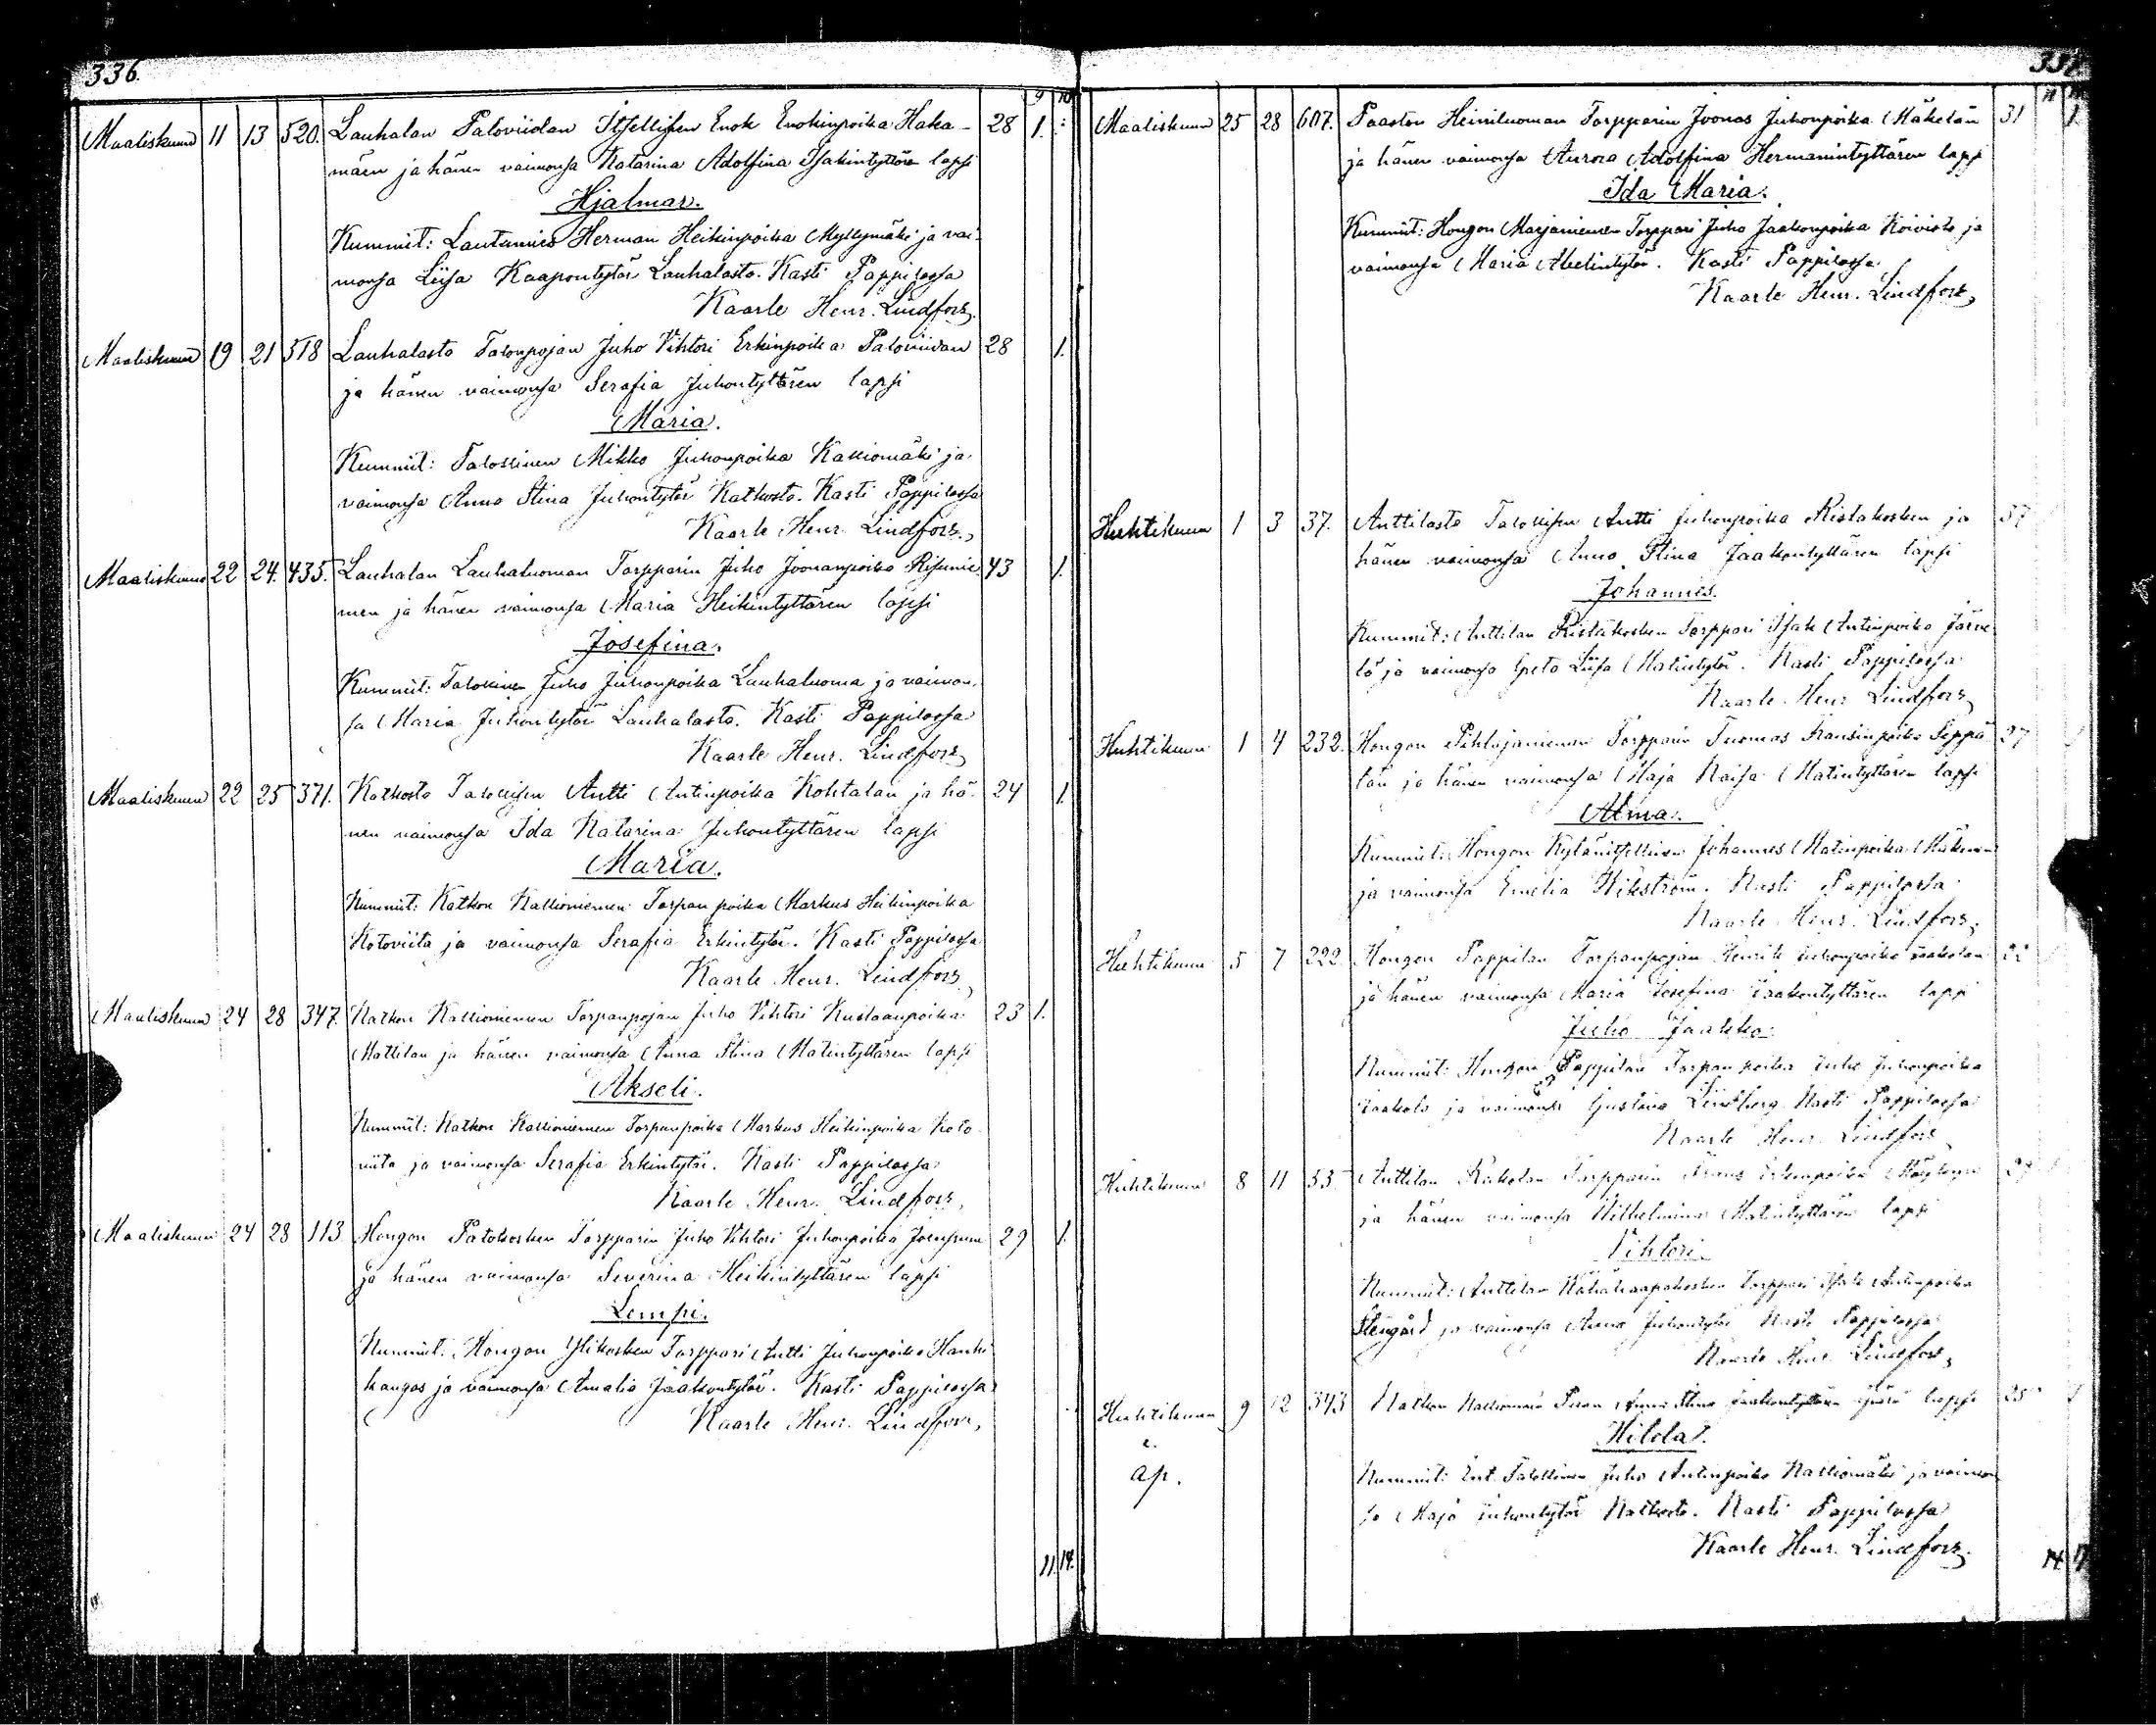 336.
9 10
Maaliskuun 11 13 520. Lauhalan Paloviidan Itsellisen Enok Enokinpoika Haka- 28 1.
mäen ja hänen vaimonsa Katarina Adolfina Isakintyttären lapsi
Hjalmar.
Kummit: Lautamies Herman Heikinpoika Myllymäki ja vai-
monsa Liisa Kaapontytär Lauhalasta. Kasti Pappilassa
Kaarle Henr. Lindfors,
Maaliskuun 19 21 518 Lauhalasta Talonpojan Juho Vihtori Erkinpoika Paloviidan 28 1.
ja hänen vaimonsa Serafia Juhontyttären lapsi
Maria.
Kummit: Talollinen Mikko Juhonpoika Kalliomäki ja
vaimonsa Anna Stina Juhontytär Katkosta. Kasti Pappilassa
Kaarle Henr. Lindfors.,
Maaliskuun 22 24. 435. Lauhalan Lauhaluoman Torpparin Juho Joonanpoika 43 1.
men ja hänen vaimonsa Maria Heikintyttären lapsi
Josefina.
Kummit: Talollinen Juho Juhonpoika Lauhaluoma ja vaimon-
sa Maria Juhontytär Lauhalasta. Kasti Pappilassa
Kaarle Henr. Lindfors,
Maaliskuun 22 25 371. Katkosta Talollisen Antti Antinpoika Kohtalan ja hä- 24 1.
nen vaimonsa Ida Katarina Juhontyttären lapsi
Maria.
Kummit: Katkon Kallioniemen Torpan poika Markus Heikinpoika
Kotoviita ja vaimonsa Serafia Erkintytär. Kasti Pappilassa
Kaarle Henr. Lindfors,
Maaliskuun 24 28 347. Katkon Kallioniemen Torpanpojan Juho Vihtori Kustaanpoika 23 1.
Mattilan ja hänen vaimonsa Anna Stina Matintyttären lapsi
Akseli.
Kummit: Katkon Kallioniemen Torpanpoika Markus Heikinpoika Koto-
viita ja vaimonsa Serafia Erkintytär. Kasti Pappilassa
Kaarle Henr. Lindfors,
Maaliskuun 24 28 113 Hongon Patokosken Torpparin Juho Vihtori Juhonpoika Joensuun 29 1.
ja hänen vaimonsa Severina Heikintyttären lapsi
Lempi.
Kummit: Hongon Ylikosken Torppari Antti Juhonpoika Hauki-
kangas ja vaimonsa Amalia Jaakontytär. Kasti Pappilassa
Kaarle Henr. Lindfors,
11. 14.
337
Maaliskuun 25 28 607. Paaston Heiniluoman Torpparin Joonas Juhonpoika Mäkelän 31 1.
ja hänen vaimonsa Aurora Adolfina Hermanintyttären lapsi
Ida Maria.
Kummit: Hongon Marjaniemen Torppari Juho Jaakonpoika Koivisto ja
vaimonsa Maria Abelintytär. Kasti Pappilassa.
Kaarle Henr. Lindfors,
Huhtikuun 1 3 37. Anttilasta Talollisen Antti Juhonpoika Ristakosken ja 37
hänen vaimonsa Anna Stina Jaakontyttären lapsi
Johannes.
Kummit: Anttilan Ristakosken Torppari Isak Antinpoika Järve-
lä ja vaimonsa Greta Liisa Matintytär. Kasti Pappilassa
Kaarle Henr. Lindfors,
Huhtikuun 1 4 232. Hongon Pihlajaniemen Torpparin Tuomas Fransinpoika Seppä- 27
län ja hänen vaimonsa Maja Kaisa Matintyttären lapsi
Alma.
Kummit: Hongon Kylänitsellinen Johannes Matinpoika Mäkinen
ja vaimonsa Emelia Wikström. Kasti Pappilassa
Kaarle Henr. Lindfors,
Huhtikuun 5 7 222. Hongon Pappilan Torpanpojan Henrik Juhonpoika Jaakolan
ja hänen vaimonsa Maria Josefina Jaakontyttären lapsi
Juho Jaakko.
Kummit: Hongon Pappilan Torpan poika Juho Juhonpoika
Jaakola ja vaimonsa Gustava Lindberg. Kasti Pappilassa
Kaarle Henr. Lindfors
Huhtikuun 8 11 53 Anttilan Torpparin Frans
ja hänen vaimonsa Wilhelmina Matintyttären lapsi
Vihtori.
Kummit: Anttilan Torppari Isak Antinpoika
Stengård ja vaimonsa Anna Juhontytär. Kasti Pappilassa
Kaarle Henr. Lindfors,
Huhtikuun 9 12 343 Katkon Kallioniemen Piian Anna Stina Jaakontyttären lapsi 25
e. ap.
Hilda.
Kummit: Ent. Talollinen Juho Antinpoika Kalliomäki ja vaimon-
sa Maja Juhontytär Katkosta. Kasti Pappilassa
Kaarle Henr. Lindfors.
14.